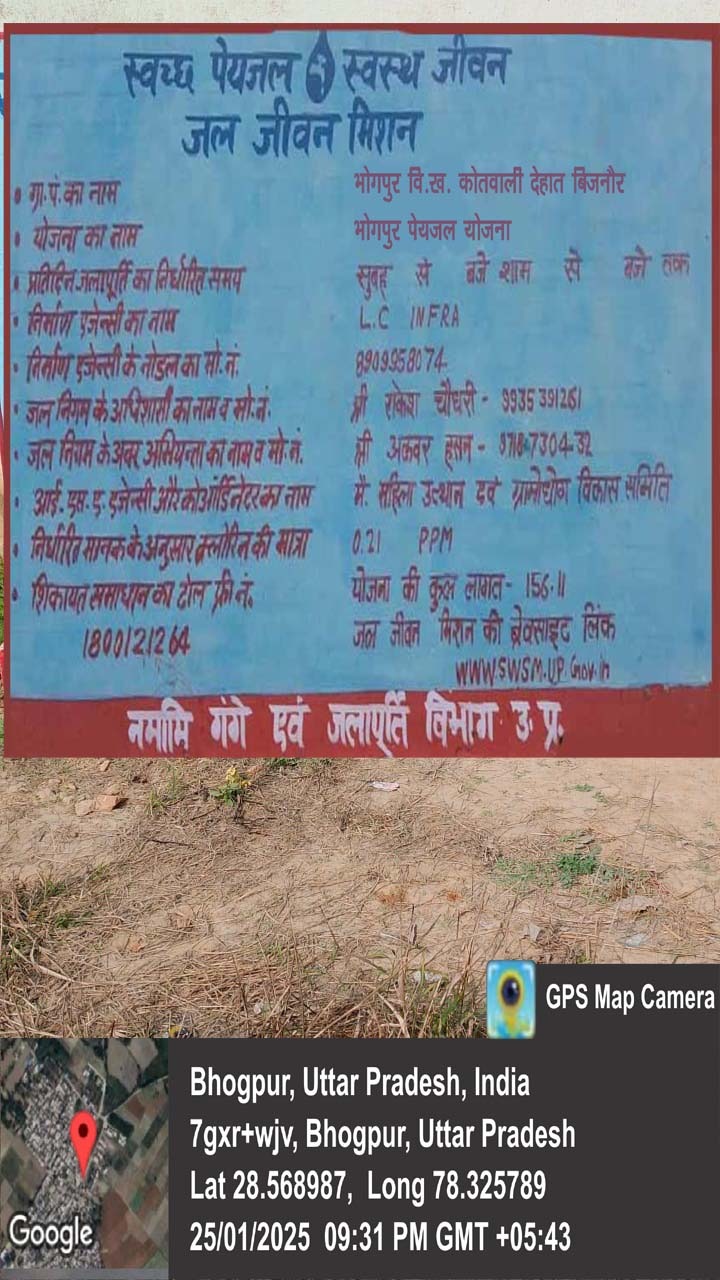 स्वच्छ पेयजल स्वस्थ जीवन
जल जीवन मिशन
• ग्रा.पं. का नाम भोगपुर वि.ख. कोतवाली देहात बिजनौर
• योजना का नाम भोगपुर पेयजल योजना
• प्रतिदिन जलापूर्ति का निर्धारित समय सुबह से बजे शाम से बजे तक
• निर्माण एजेन्सी का नाम L.C INFRA
• निर्माण एजेन्सी के नोडल का मो. नं. 8909958074
• जल निगम के अधिशासी का नाम व मो. नं. श्री राकेश चौधरी - 9935391261
• जल निगम के अवर अभियन्ता का नाम व मो. नं. श्री अकबर हसन -
• आई. एस. ए. एजेन्सी और कोऑर्डिनेटर का नाम मै. महिला उत्थान एवं ग्रामोद्योग विकास समिति
• निर्धारित मानक के अनुसार क्लोरिन की मात्रा 0.21 PPM
• शिकायत समाधान का टोल फ्री नं. योजना की कुल लागत - 156.11
1800121264 जल जीवन मिशन की बेवसाइट लिंक
WWW.SWSM.UP.Gov.in
नमामि गंगे एवं जलापूर्ति विभाग उ. प्र.
GPS Map Camera
Bhogpur, Uttar Pradesh, India
7gxr+wjv, Bhogpur, Uttar Pradesh
Lat 28.568987, Long 78.325789
25/01/2025 09:31 PM GMT +05:43
Google